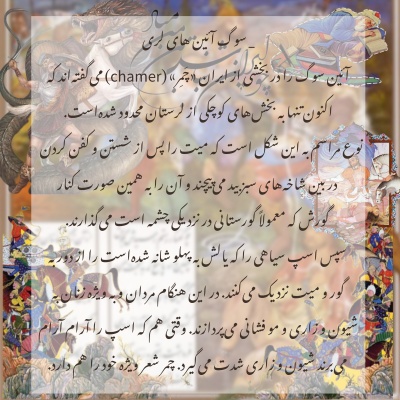 سوگ آئین های لری
آئین سوگ را در بخشی از ایران «چمر» (chamer) می‌گفته‌اند که
اکنون تنها به بخش‌های کوچکی از لرستان محدود شده‌است.
نوع مراسم به این شکل است که میت را پس از شستن و کفن کردن
در بین شاخه‌های سبز بید می‌پیچند و آن را به همین صورت کنار
گورش که معمولاً گورستانی در نزدیکی چشمه است می‌گذارند.
سپس اسپ سیاهی را که یالش به پهلو شانه شده‌است را از دور به
گور و میت نزدیک می‌کنند. در این هنگام مردان و به ویژه زنان به
شیون و زاری و مو فشانی می‌پردازند. وقتی هم که اسپ را آرام آرام
می‌برند شیون و زاری شدت می‌گیرد. چمر شعر ویژه خود را هم دارد.